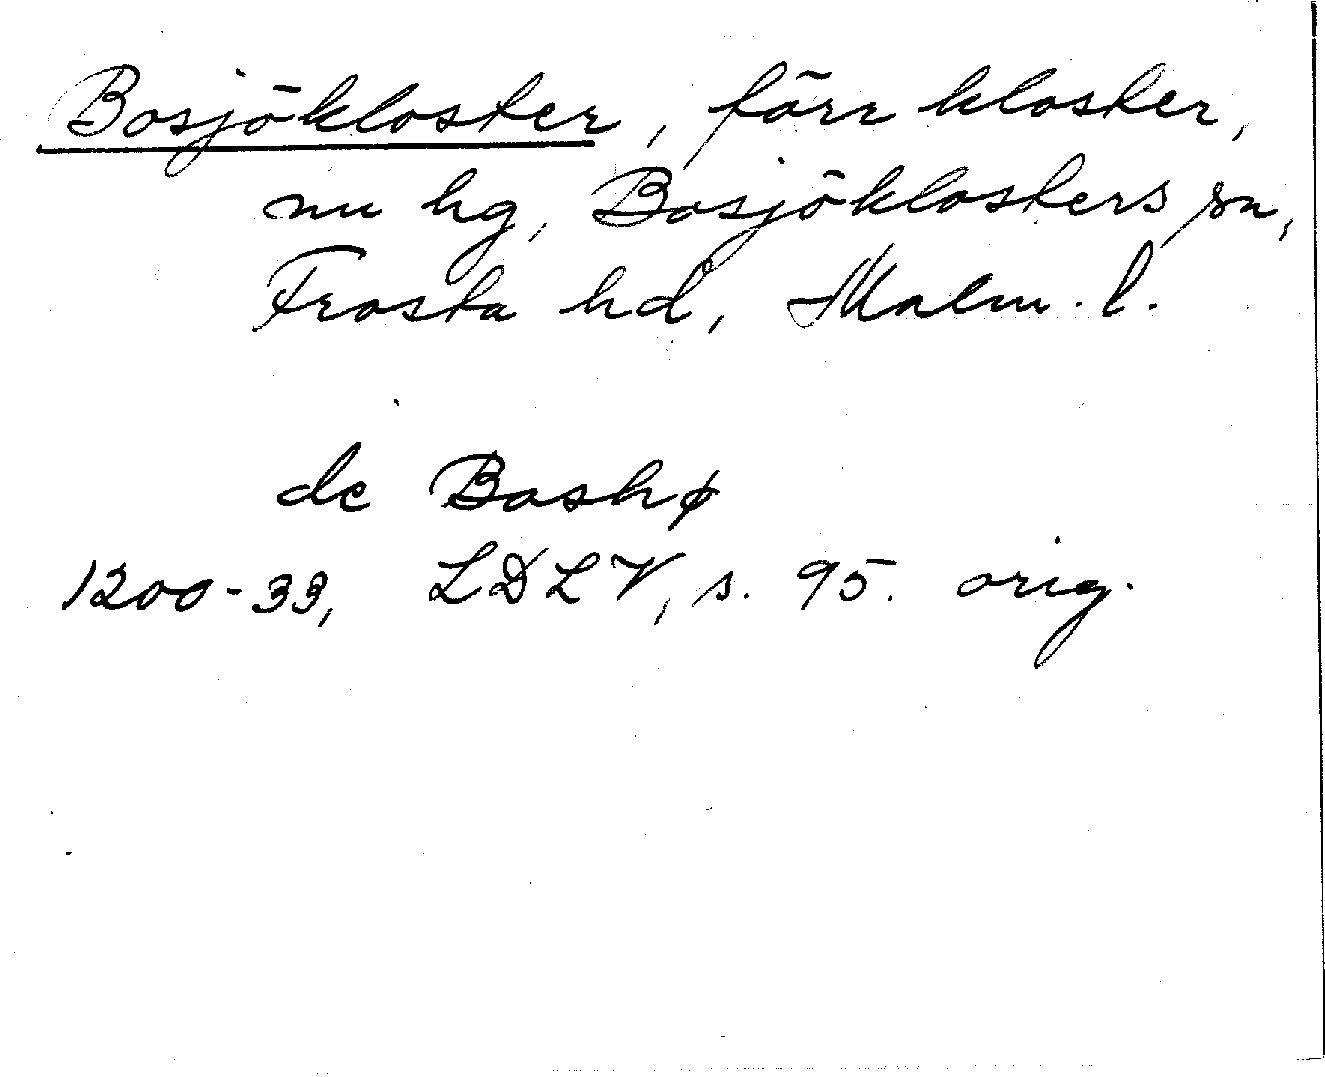 Bosjökloster, förr kloster,
nu hg, Bosjöklosters sn,
Frosta hd, Malm. l.
de Boshø
1200-33, LDLV, s. 95. orig.